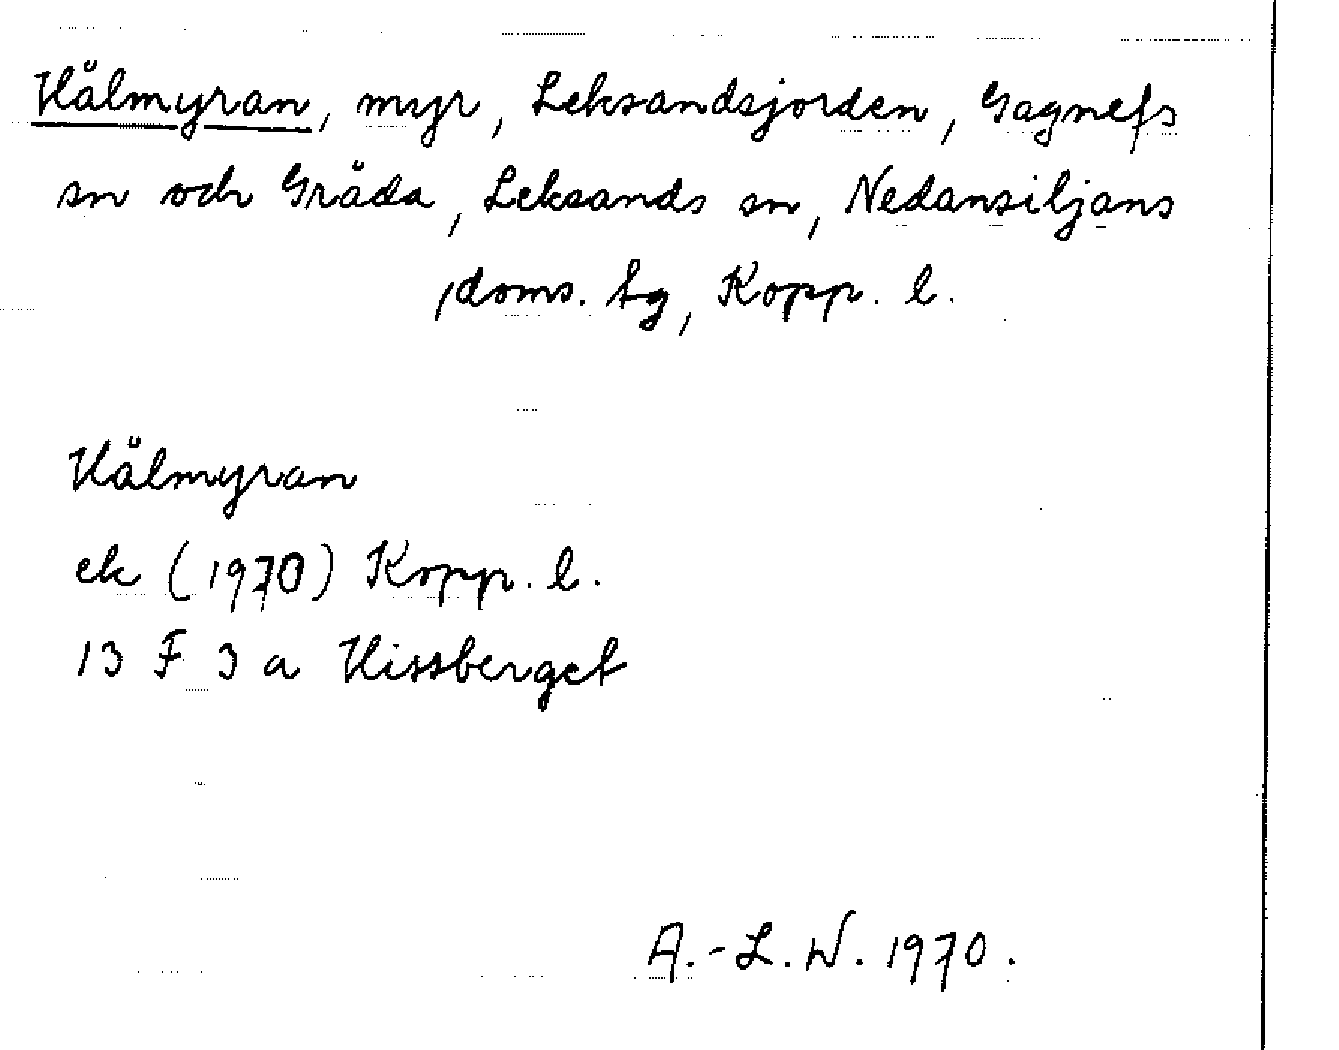 Hålmyran, myr, Leksandsjorden, Gagnefs
sn och Gråda, Leksands sn, Nedansiljans
doms. tg, Kopp. l.
Hålmyran
ek (1970) Kopp. l.
13 F 3 a Hissberget
A.-L.W. 1970.